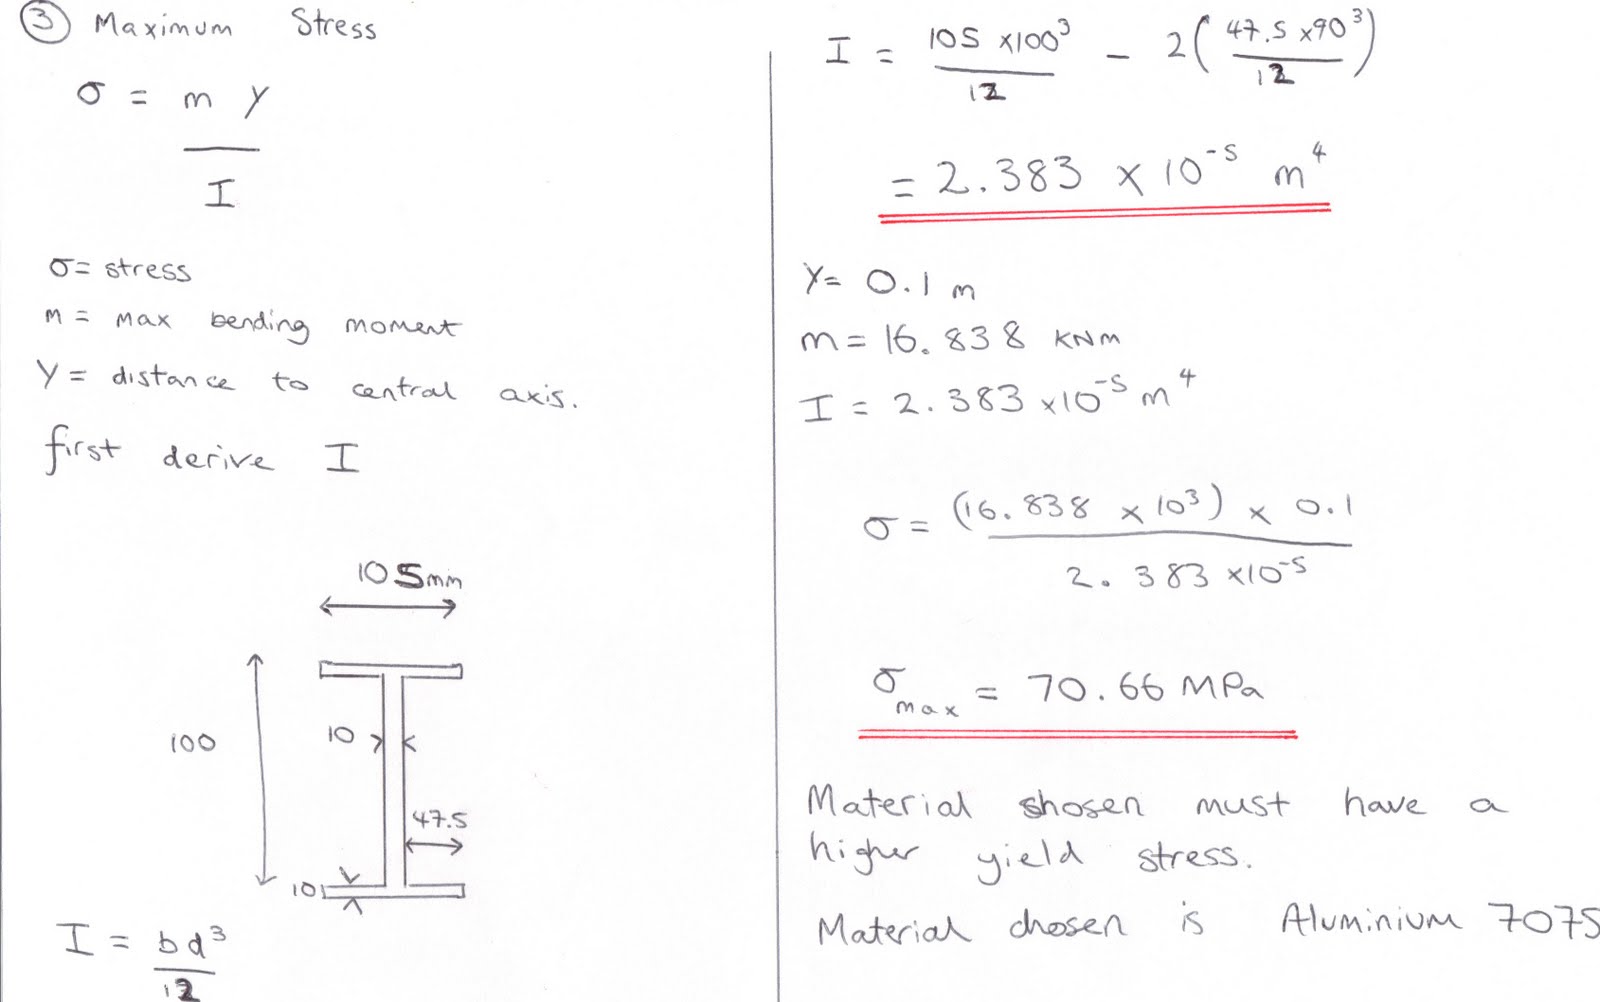 ③ Maximum Stress
σ = m y
I
σ = stress
m = max bending moment
Y = distance to central axis.
first derive I
105mm
100
10
47.5
10
I = bd³
12
I = 105 × 100³ / 12 − 2 ( 47.5 × 90³ / 12 )
= 2.383 × 10⁻⁵ m⁴
Y = 0.1 m
m = 16.838 KNM
I = 2.383 × 10⁻⁵ m⁴
σ = (16.838 × 10³) × 0.1
2.383 × 10⁻⁵
σmax = 70.66 MPa
Material shosen must have a
higher yield stress.
Material chosen is Aluminium 7075